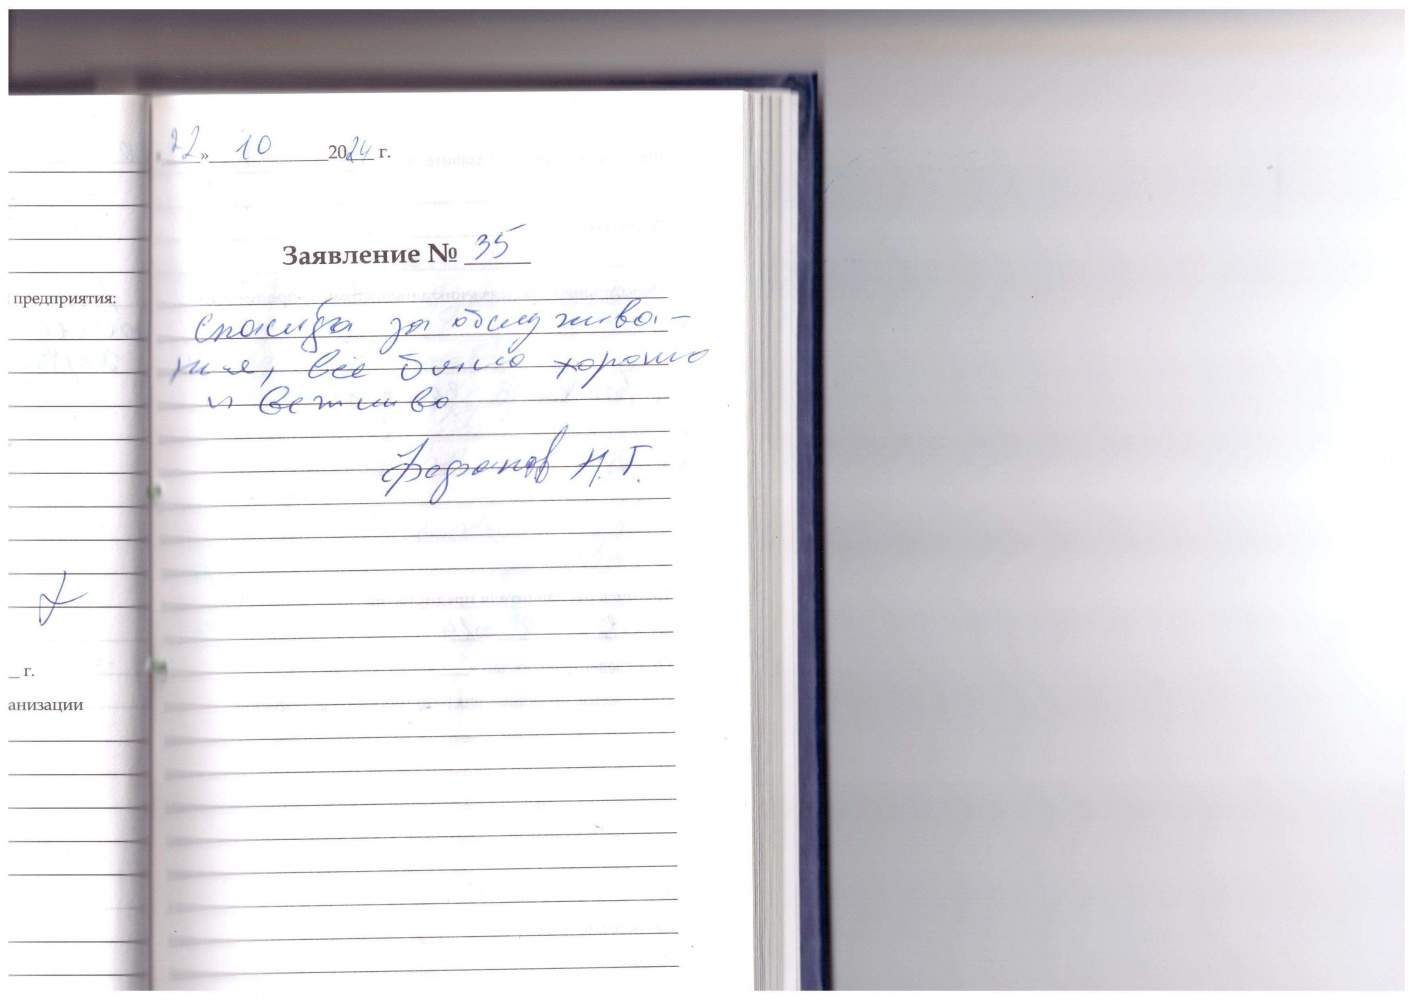 «22» 10 2024 г.
Заявление № 35
предприятия:
спасибо за обслужива-
ния, все было хорошо
и вежливо
Н.Г.
_ г.
анизации